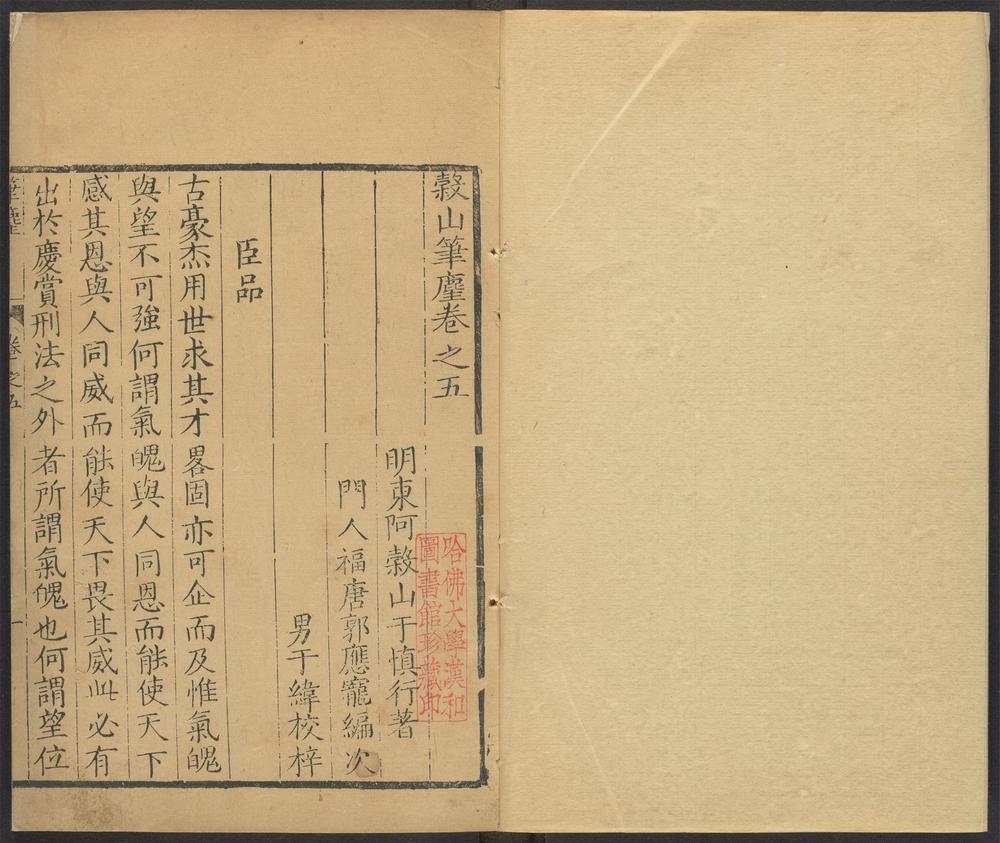 穀山筆麈卷之五
明東阿穀山于慎行著
門人福唐郭應寵編次
男于緯校梓
臣品
古豪杰用世求其才畧固亦可企而及惟氣魄
與望不可強何謂氣魄與人同恩而能使天下
感其恩與人同威而能使天下畏其威此必有
出於慶賞刑法之外者所謂氣魄也何謂望位
筆麈
卷之五
一
哈佛大學漢和
圖書館珍藏印